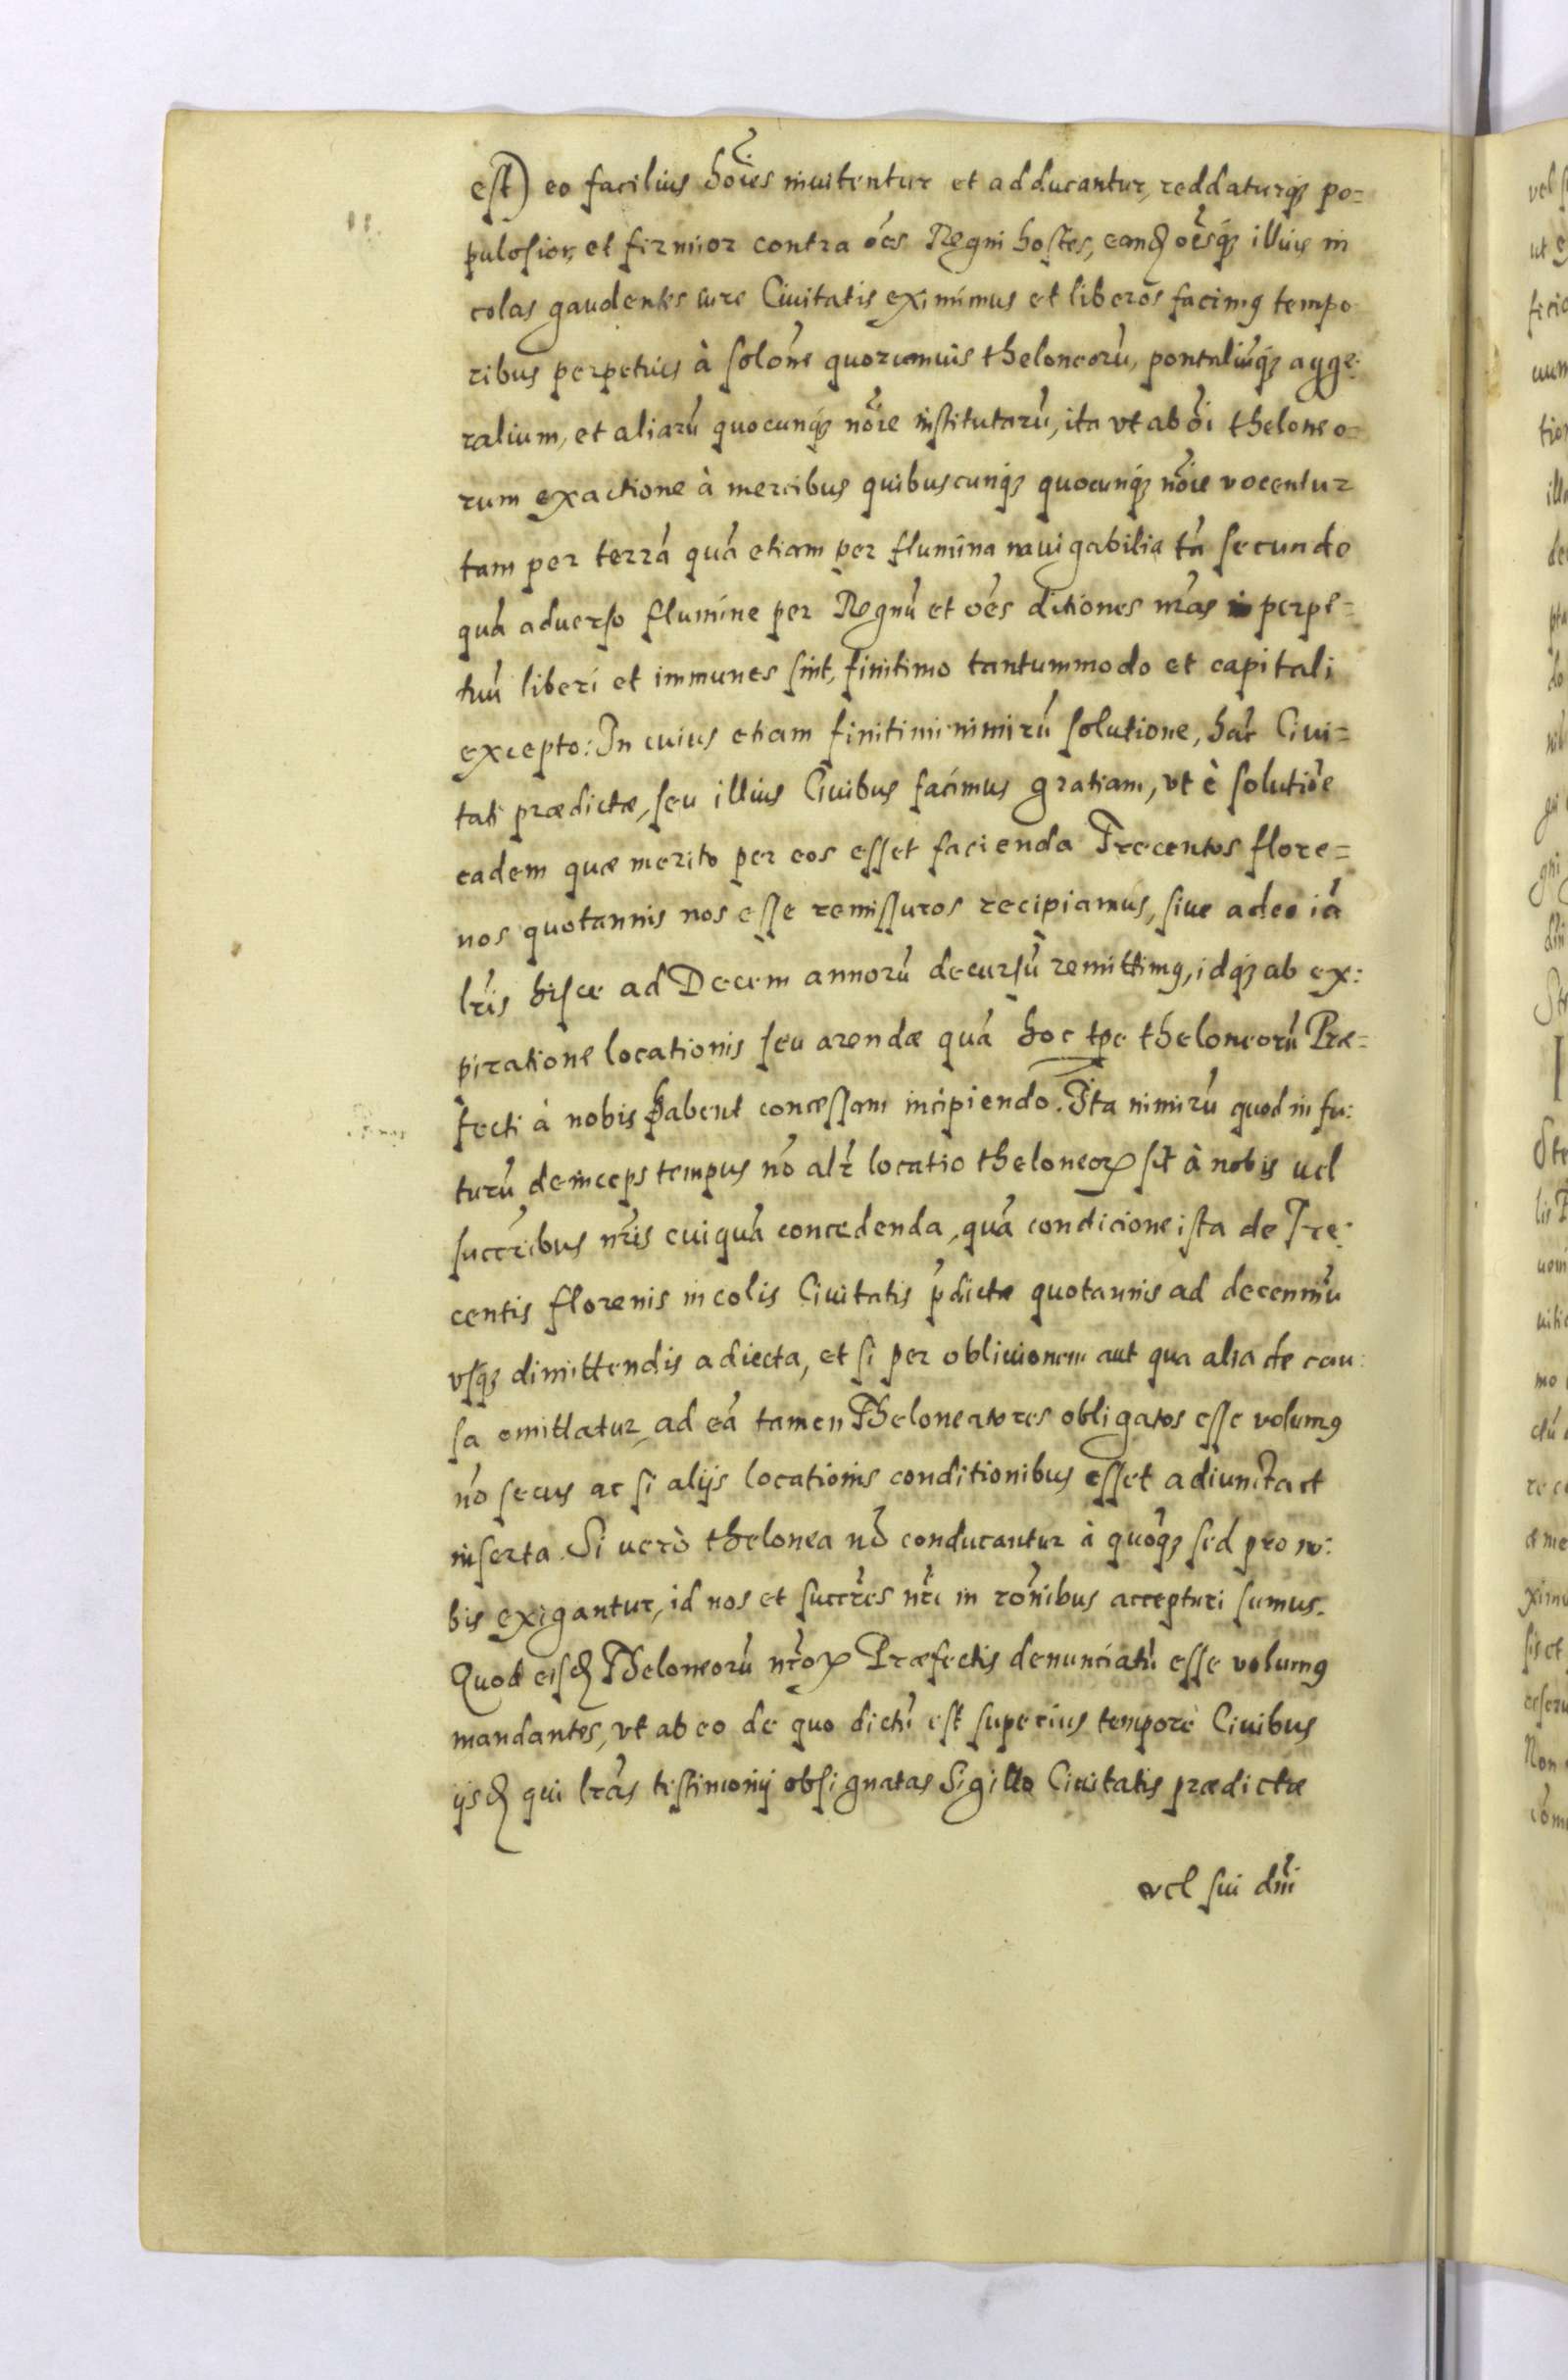 est) eo facilius hoĩes inuitentur et adducantur, reddaturq₃ po=
pulosior, et firmior contra oẽs Regni hostes, eandẽ oẽsq₃ illius in
colas gaudentes iure Ciuitatis eximimus et liberos facimꝰ tempo
ribus perpetuis à solõne quorumuis theloneorũ, pontaliũq₃ agge:
ralium, et aliarũ quocunq₃ nõie institutarũ, ita vt ab õi theloneo=
rum exactione à mercibus quibuscunq₃ quocunq₃ nõie vocentur
tam per terrã quã etiam per flumina nauigabilia tã secundo
quã aduerso flumine per Regnũ et oẽs ditiones nr̃as perpe=
tuũ liberi et immunes sint, finitimo tantummodo et capitali
excepto: In cuius etiam finitimi nimirũ solutione, hãc Ciui=
tati prædictæ, seu illius Ciuibus facimus gratiam, vt è solutiõe
eadem quæ merito per eos esset facienda Trecentos flore=
nos quotannis nos esse remissuros recipiamus, siue adeo iã
lr̃is hisce ad Decem annorũ decursũ remittimꝰ, idq₃ ab ex:
piratione locationis seu arendæ quã hoc tp̃e theloneorũ Præ=
fecti à nobis habent concessam incipiendo. Ita nimirũ quod in fu:
turũ deinceps tempus nõ alr̃ locatio theloneoꝝ sit à nobis uel
succr̃ibus nr̃is cuiquã concedenda, quã condicione ista de Tre:
centis florenis incolis Ciuitatis p̃dictæ quotannis ad decenniũ
vsq₃ dimittendis adiecta, et si per obliuionem aut qua alia de cau:
sa omittatur, ad eã tamen Theloneatores obligatos esse volumꝰ
nõ secus ac si alijs locationis conditionibus esset adiuncta et
inserta. Si uerò thelonea nõ conducantur à quoq₃ sed pro no:
bis exigantur, id nos et succr̃es nr̃i in rõnibus accepturi sumus.
Quod eisdẽ Theloneorũ nr̃oꝝ Præfectis denunciatũ esse volumꝰ
mandantes, vt ab eo de quo dictũ est superius tempore Ciuibus
ijsdẽ qui lr̃as testimonij obsignatas Sigillo Ciuitatis prædictæ
vel sui dñi